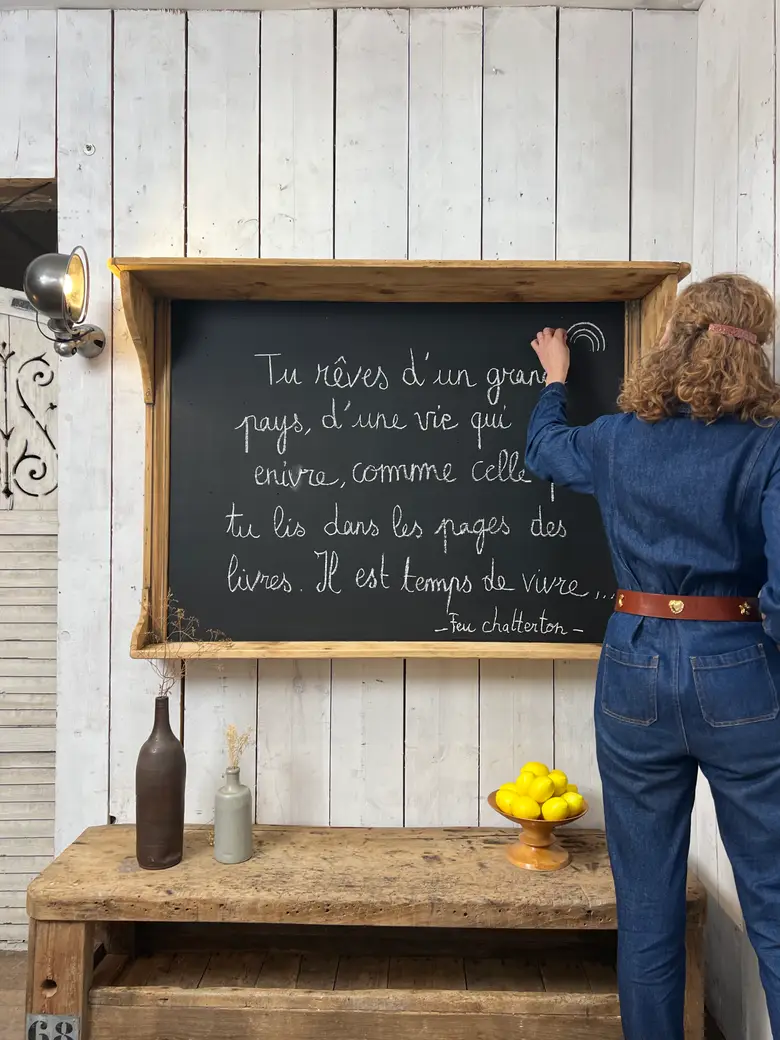 Tu rêves d'un gran
pays, d'une vie qui
enivre, comme celle
tu lis dans les pages des
livres. Il est temps de vivre...
-Feu chatterton-
68